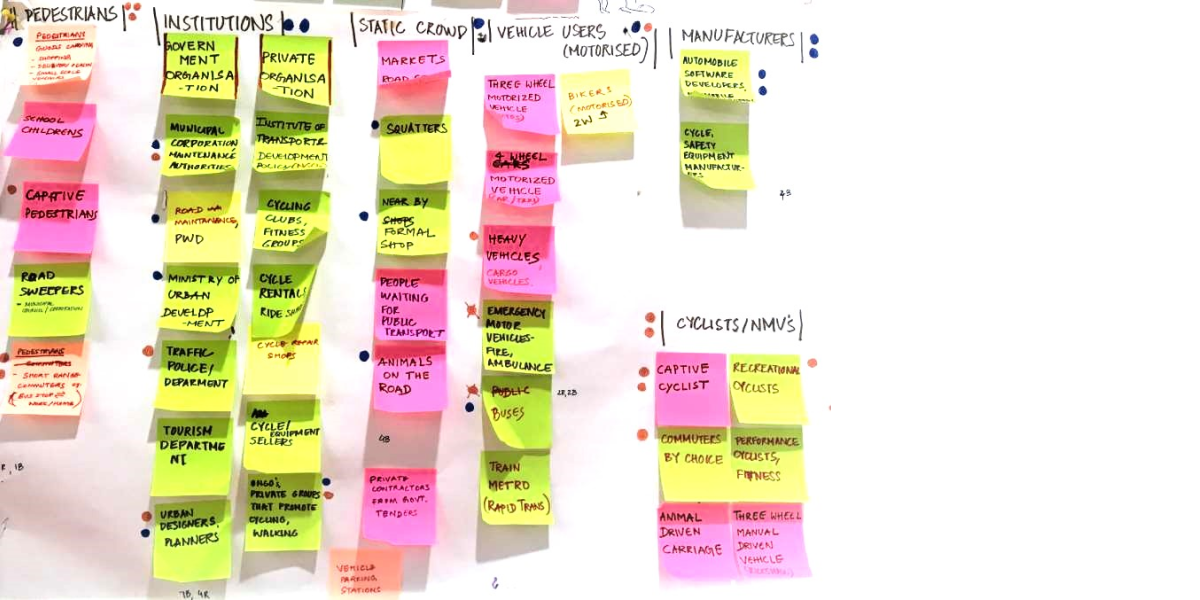 PEDESTRIANS
PEDESTRIANS
GOODS CARRYING
- SHOPPING
SCHOOL
CHILDRENS
CAPTIVE
PEDESTRIANS
ROAD
SWEEPERS
- MUNICIPAL
PEDESTRIANS
COMMUTERS
- SHORT RANGE
COMMUTERS
WORK/HOME)
INSTITUTIONS
GOVERN
MENT
ORGANISA
-TION
MUNICIPAL
CORPORATION
MAINTENANCE
AUTHORITIES
ROAD
MAINTANANCE,
PWD
MINISTRY OF
URBAN
DEVELOP
-MENT
TRAFFIC
POLICE/
DEPARMENT
TOURISM
DEPARTME
NT
URBAN
DESIGNERS,
PLANNERS
7B, 4R
PRIVATE
ORGANISA
-TION
INSTITUTE OF
TRANSPORT &
DEVELOPMENT
CYCLING
CLUBS,
FITNESS
GROUPS
CYCLE
RENTAL
RIDE
CYCLE REPAIR
SHOPS
CYCLE/
EQUIPMENT
SELLERS
PRIVATE GROUPS
THAT PROMOTE
CYCLING,
WALKING
STATIC CROWD
MARKETS
ROAD
SQUATTERS
NEAR BY
SHOPS
FORMAL
SHOP
PEOPLE
WAITING
FOR
PUBLIC
TRANSPORT
ANIMALS
ON THE
ROAD
PRIVATE
CONTRACTORS
FROM GOVT.
TENDERS
VEHICLE
PARKING
STATIONS
VEHICLE USERS
(MOTORISED)
THREE WHEEL
MOTORIZED
VEHICLE
BIKERS
(MOTORISED)
2W
4 WHEEL
CARS
MOTORIZED
VEHICLE
(CAR/TAXI)
HEAVY
VEHICLES
CARGO
VEHICLES.
EMERGENCY
MOTOR
VEHICLES-
FIRE,
AMBULANCE
PUBLIC
BUSES
2R,2B
TRAIN
METRO
(RAPID TRANS)
MANUFACTURERS
AUTOMOBILE
SOFTWARE
DEVELOPERS,
CYCLE,
SAFETY
EQUIPMENT
MANUFACTUR-
ERS
4B
CYCLISTS/NMV'S
CAPTIVE
CYCLIST
RECREATIONAL
CYCLISTS
COMMUTERS
BY CHOICE
PERFORMANCE
CYCLISTS,
FITNESS
ANIMAL
DRIVEN
CARRIAGE
THREE WHEEL
MANUAL
DRIVEN
VEHICLE